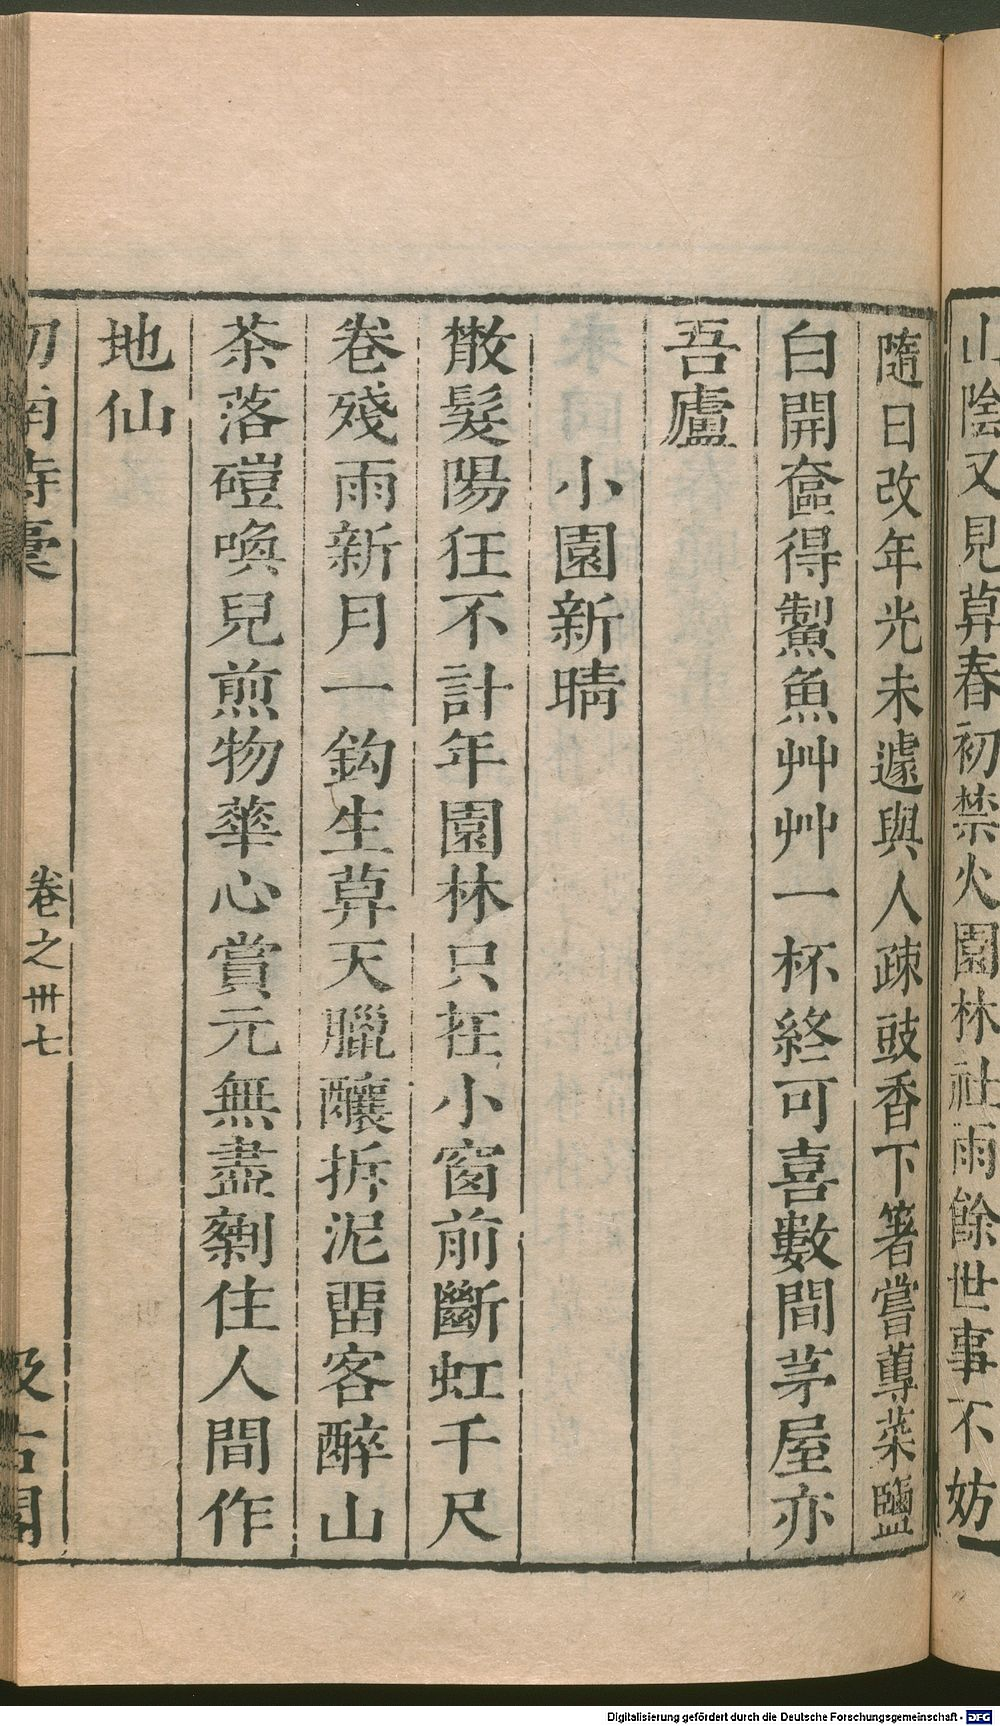 山陰又見莫春初禁火園林社雨餘世事不妨
隨日改年光未遽與人疎豉香下箸嘗蓴菜鹽
白開奩得鮆魚艸艸一杯終可喜數間茅屋亦
吾廬
小園新晴
散髮陽狂不計年園林只在小窗前斷虹千尺
卷殘雨新月一鈎生莫天臘釀拆泥畱客醉山
茶落磑喚兒煎物華心賞元無盡剩住人間作
地仙
劍南詩稾
卷之卌七
汲古閣
Digitalisierung gefördert durch die Deutsche Forschungsgemeinschaft - DFG